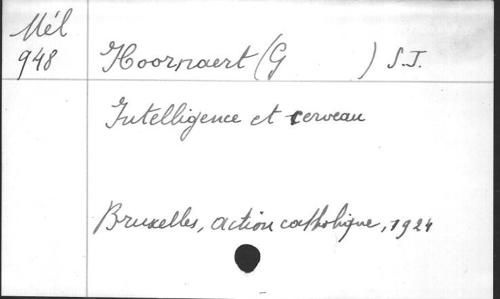 Mél
948
Hoornaert (G ) S.J.
Intelligence et cerveau
Bruxelles, action catholique, 1924